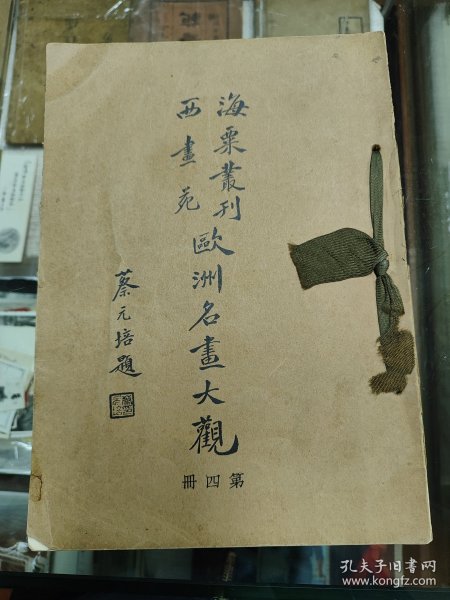 海粟叢刊
西畫苑
歐洲名畫大觀
蔡元培題
第四冊
孔夫子旧书网
www.kongfz.com